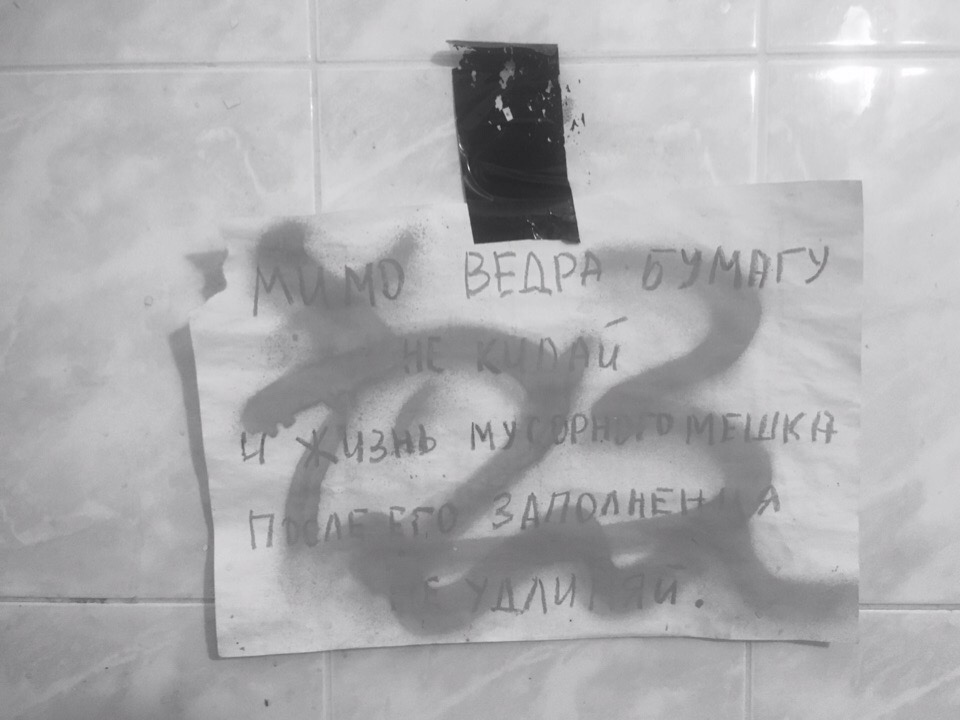 МИМО ВЕДРА БУМАГУ
НЕ КИДАЙ
И ЖИЗНЬ МУСОРНОГО МЕШКА
ПОСЛЕ ЕГО ЗАПОЛНЕНИЯ
НЕ УДЛИНЯЙ.